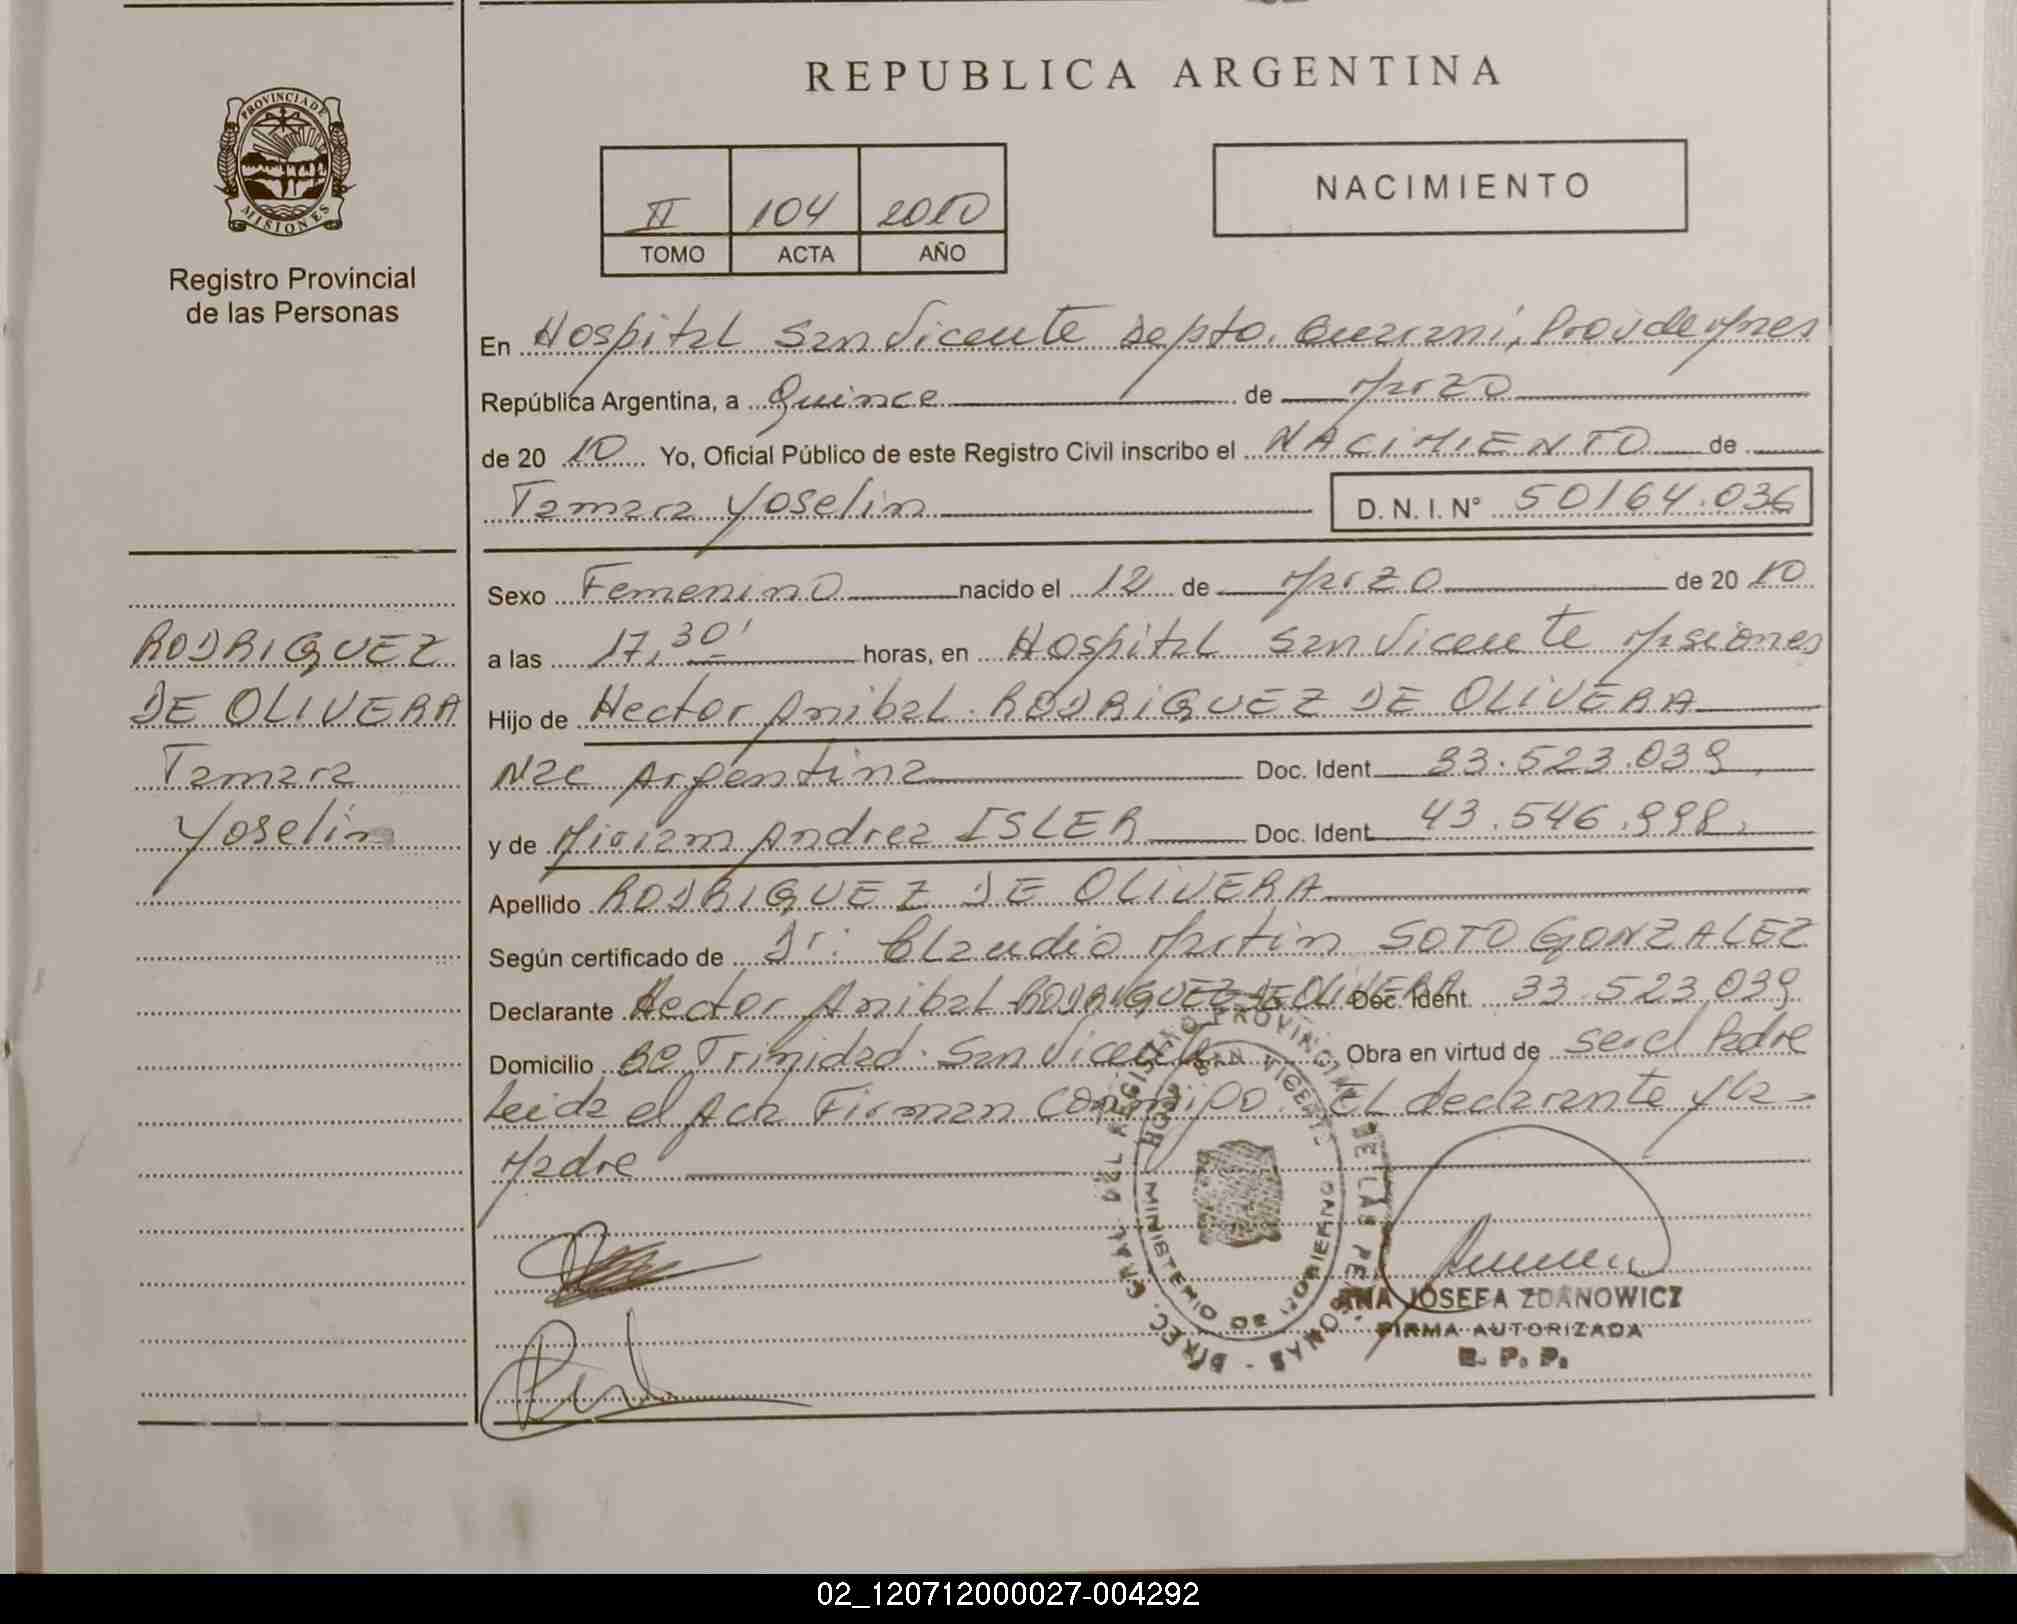 REPUBLICA ARGENTINA
PROVINCIA DE
MISIONES
Registro Provincial
de las Personas
II 104 2010
TOMO ACTA AÑO
NACIMIENTO
En Hospital San Vicente Depto. Guarani, Prov de Mnes
República Argentina, a Quince de Marzo
de 20 10 Yo, Oficial Público de este Registro Civil inscribo el NACIMIENTO de
Tamara Yoselin D. N. I. N° 50164.036
Sexo Femenino nacido el 12 de Marzo de 20 10
a las 17,30' horas, en Hospital San Vicente Misiones
Hijo de Hector Anibal RODRIGUEZ DE OLIVERA
Nac Argentina Doc. Ident 33.523.039
y de Miriam Andrea ISLER Doc. Ident 43.546.998.
Apellido RODRIGUEZ DE OLIVERA
Según certificado de Dr: Claudio Martin SOTO GONZALEZ
Declarante Hector Anibal RODRIGUEZ DE OLIVERA Doc. Ident. 33.523.039
Domicilio Bº Trinidad. San Vicente Obra en virtud de ser el Padre
Leida el Acta Firman conmigo El declarante y la
Madre
RODRIGUEZ
DE OLIVERA
Tamara
Yoselin
DIREC. GRAL. DEL REGISTRO PROVINCIAL DE LAS PERSONAS
HOSP. SAN VICENTE
MINISTERIO DE GOBIERNO
ANA JOSEFA ZDANOWICZ
FIRMA AUTORIZADA
R. P. P.
02_120712000027-004292